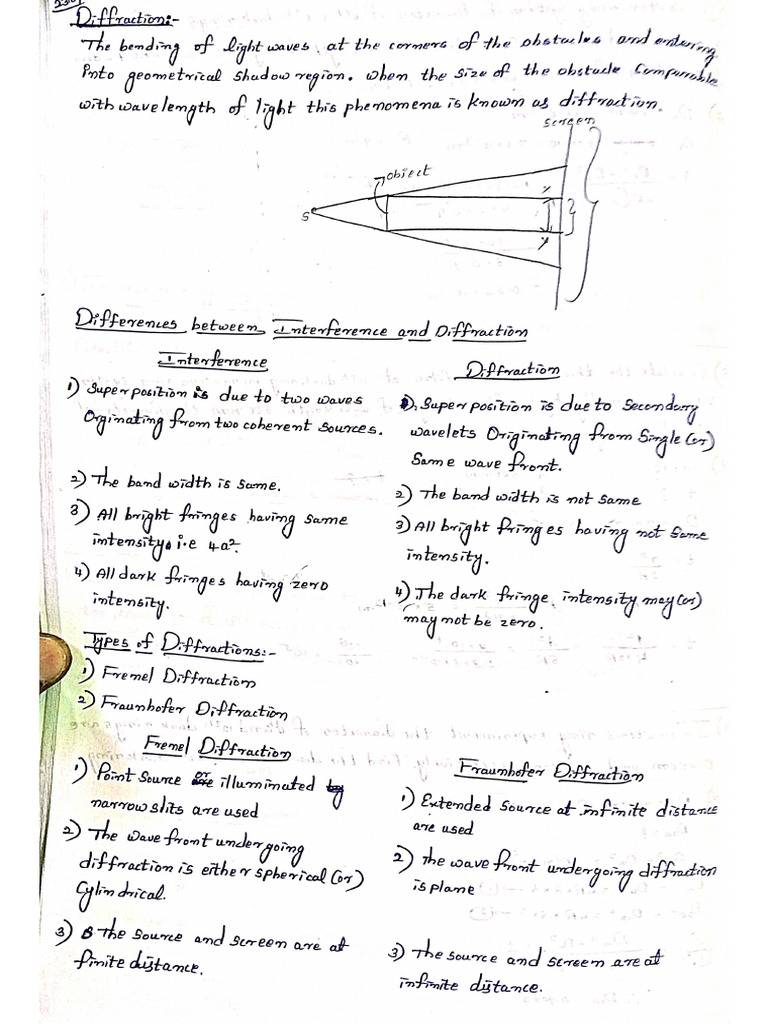 Diffraction:-
The bending of light waves at the corners of the obstacles and entering
into geometrical shadow region. When the size of the obstacle Comparable
with wave length of light this phenomena is known as diffraction.
Screen
object
S
Differences between Interference and Diffraction
Interference
1) Superposition is due to two waves
Orginating from two coherent sources.
2) The band width is same.
3) All bright fringes having same
intensity. i.e 4a².
4) All dark fringes having zero
intensity.
Diffraction
1) Superposition is due to Secondary
wavelets Originating from Single (or)
Same wave front.
2) The band width is not same
3) All bright fringes having not same
intensity.
4) The dark fringe intensity may (or)
may not be zero.
Types of Diffractions:-
1) Frenel Diffraction
2) Fraunhofer Diffraction
Frenel Diffraction
1) Point Source or illuminated
narrow slits are used
2) The wave front undergoing
diffraction is either spherical (or)
Cylindrical.
3) The source and screen are at
finite distance.
Fraunhofer Diffraction
1) Extended Source at infinite distance
are used
2) The wave front undergoing diffraction
is plane
3) The source and screen are at
infinite distance.